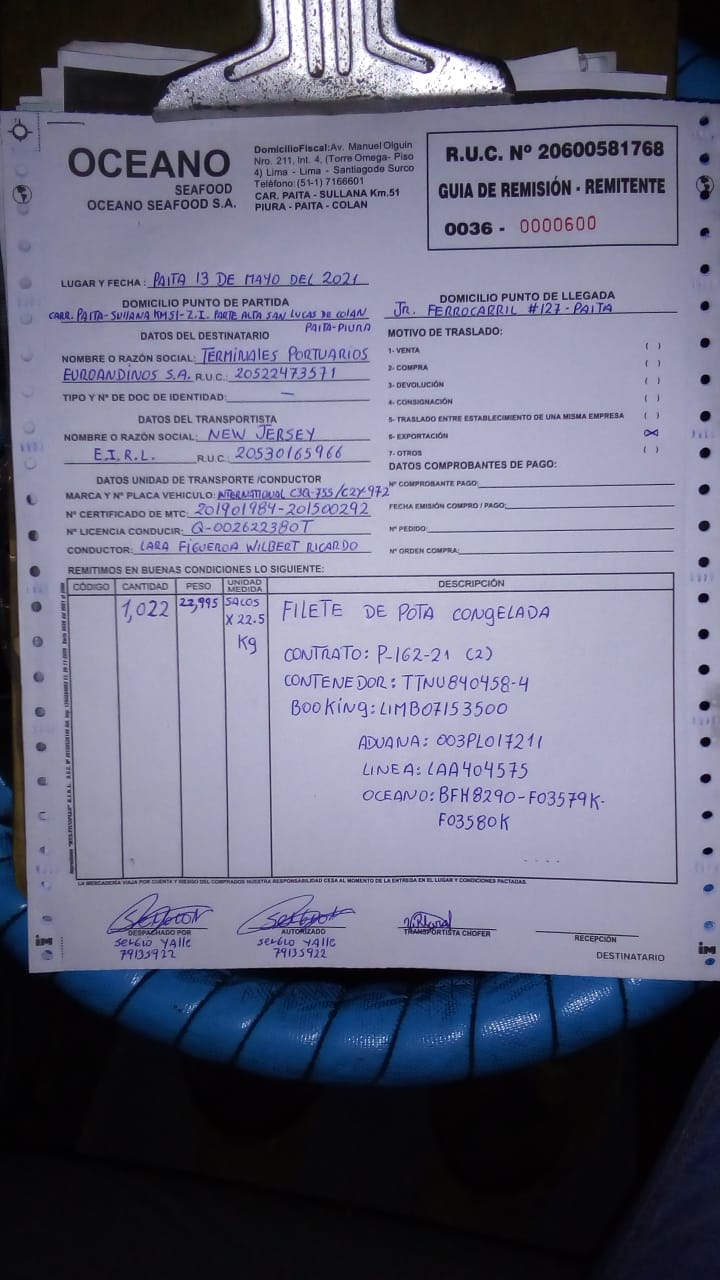 OCEANO
SEAFOOD
OCEANO SEAFOOD S.A.
DomicilioFiscal: Av. Manuel Olguin
Nro. 211, Int. 4, (Torre Omega- Piso
4) Lima - Lima - Santiagode Surco
Teléfono:(51-1) 7166601
CAR. PAITA - SULLANA Km.51
PIURA - PAITA - COLAN
R.U.C. Nº 20600581768
GUIA DE REMISIÓN - REMITENTE
0036 - 0000600
LUGAR Y FECHA : PAITA 13 DE MAYO DEL 2021
DOMICILIO PUNTO DE PARTIDA
CARR. PAITA-SULLANA KM51-Z.I. PARTE ALTA SAN LUCAS DE COLAN
PAITA-PIURA
DOMICILIO PUNTO DE LLEGADA
JR. FERROCARRIL #127-PAITA
DATOS DEL DESTINATARIO
NOMBRE O RAZÓN SOCIAL: TERMINALES PORTUARIOS
EUROANDINOS S.A. R.U.C.: 20522473571
TIPO Y Nº DE DOC DE IDENTIDAD: —
DATOS DEL TRANSPORTISTA
NOMBRE O RAZÓN SOCIAL: NEW JERSEY
E.I.R.L. R.U.C.: 20530165966
DATOS UNIDAD DE TRANSPORTE /CONDUCTOR
MARCA Y Nº PLACA VEHICULO: INTERNATIONAL C3Q-755/C2Y-972
Nº CERTIFICADO DE MTC: 201901984-201500292
Nº LICENCIA CONDUCIR: Q-002622380T
CONDUCTOR: LARA FIGUEROA WILBERT RICARDO
MOTIVO DE TRASLADO:
1- VENTA ( )
2- COMPRA ( )
3- DEVOLUCIÓN ( )
4- CONSIGNACIÓN ( )
5- TRASLADO ENTRE ESTABLECIMIENTO DE UNA MISMA EMPRESA ( )
6- EXPORTACIÓN (X)
7- OTROS ( )
DATOS COMPROBANTES DE PAGO:
Nº COMPROBANTE PAGO:
FECHA EMISIÓN COMPRO / PAGO:
Nº PEDIDO:
Nº ORDEN COMPRA:
REMITIMOS EN BUENAS CONDICIONES LO SIGUIENTE:
CÓDIGO CANTIDAD PESO UNIDAD MEDIDA DESCRIPCIÓN
1,022 22,995 SACOS FILETE DE POTA CONGELADA
X 22.5
Kg
CONTRATO: P-162-21 (2)
CONTENEDOR: TTNU840458-4
BOOKING: LIMB07153500
ADUANA: 003PL017211
LINEA: LAA404575
OCEANO: BFH8290-F03579K-
F03580K
LA MERCADERÍA VIAJA POR CUENTA Y RIESGO DEL COMPRADOS NUESTRA RESPONSABILIDAD CESA AL MOMENTO DE LA ENTREGA EN EL LUGAR Y CONDICIONES PACTADAS.
DESPACHADO POR
Sergio Yalle
79135922
AUTORIZADO
Sergio Yalle
79135922
TRANSPORTISTA CHOFER
RECEPCIÓN
DESTINATARIO
im
im